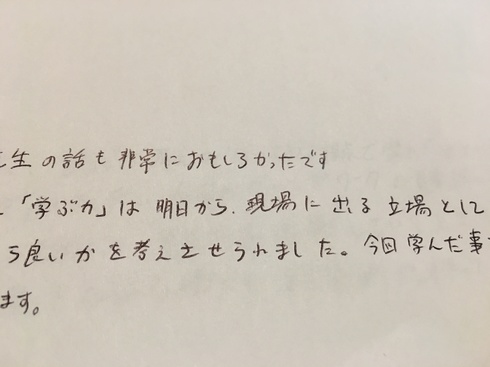 生の話も非常におもしろかったです
「学ぶ力」は明日から、現場に出る立場として
ら良いかを考えさせられました。今回学んだ事
ます。